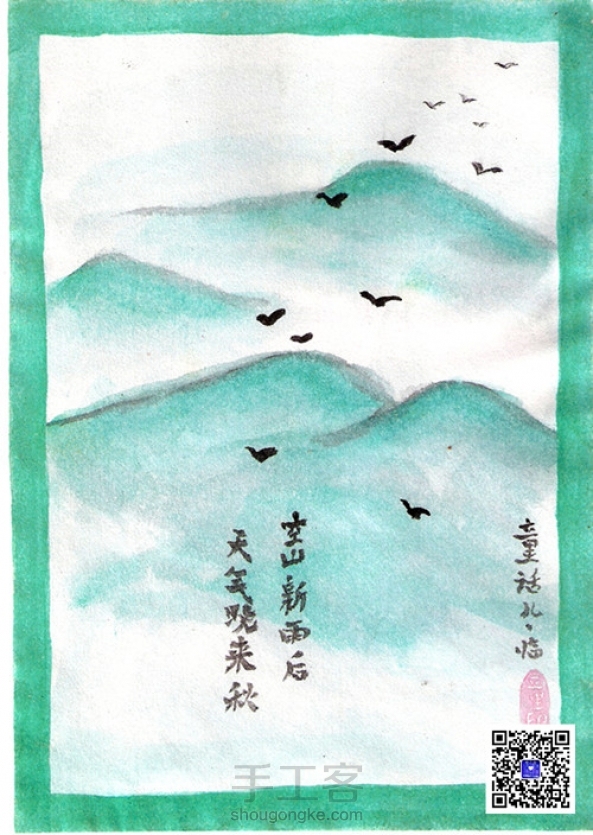 空山新雨后
天气晚来秋
童话礼、临
手工客
shougongke.com